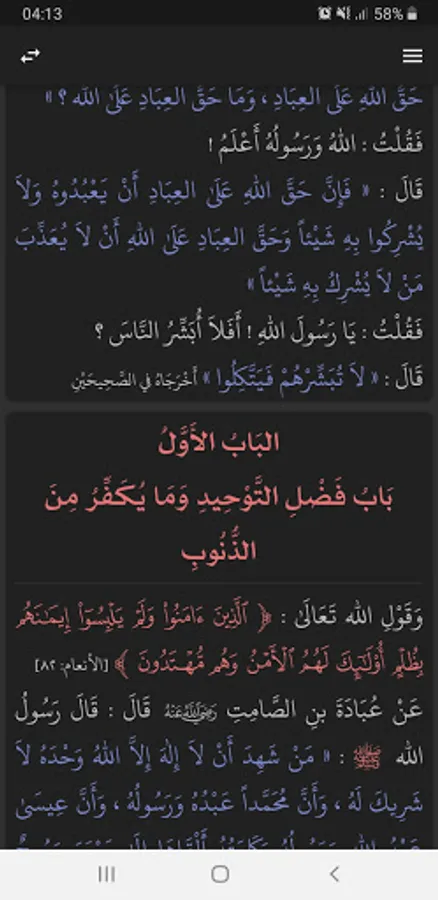 04:13
58%
حَقُّ اللهِ عَلَى العِبَادِ ، وَمَا حَقُّ العِبَادِ عَلَى الله ؟ »
فَقُلْتُ : اللهُ وَرَسُولُهُ أَعْلَمُ !
قَالَ : « فَإِنَّ حَقَّ اللهِ عَلَى العِبَادِ أَنْ يَعْبُدُوهُ وَلاَ
يُشْرِكُوا بِهِ شَيْئاً وَحَقَّ العِبَادِ عَلَى اللهِ أَنْ لاَ يُعَذِّبَ
مَنْ لاَ يُشْرِكُ بِهِ شَيْئاً »
فَقُلْتُ : يَا رَسُولَ اللهِ ! أَفَلاَ أُبَشِّرُ النَّاسَ ؟
قَالَ : « لاَ تُبَشِّرْهُمْ فَيَتَّكِلُوا » أَخْرَجَاهُ فِي الصَّحِيحَيْنِ
البَابُ الأَوَّلُ
بَابُ فَضْلِ التَّوْحِيدِ وَمَا يُكَفِّرُ مِنَ
الذُّنُوبِ
وَقَوْلِ الله تَعَالَى : ﴿ ٱلَّذِينَ ءَامَنُوا۟ وَلَمۡ يَلۡبِسُوٓا۟ إِيمَـٰنَهُم
بِظُلۡمٍ أُو۟لَـٰٓئِكَ لَهُمُ ٱلۡأَمۡنُ وَهُم مُّهۡتَدُونَ ﴾ [الأنعام: ٨٢]
عَنْ عُبَادَةَ بنِ الصَّامِتِ رَضِيَ اللَّهُ عَنْهُ قَالَ : قَالَ رَسُولُ
الله ﷺ : « مَنْ شَهِدَ أَنْ لاَ إِلٰهَ إِلاَّ اللهُ وَحْدَهُ لاَ
شَرِيكَ لَهُ ، وَأَنَّ مُحَمَّداً عَبْدُهُ وَرَسُولُهُ ، وَأَنَّ عِيسَى